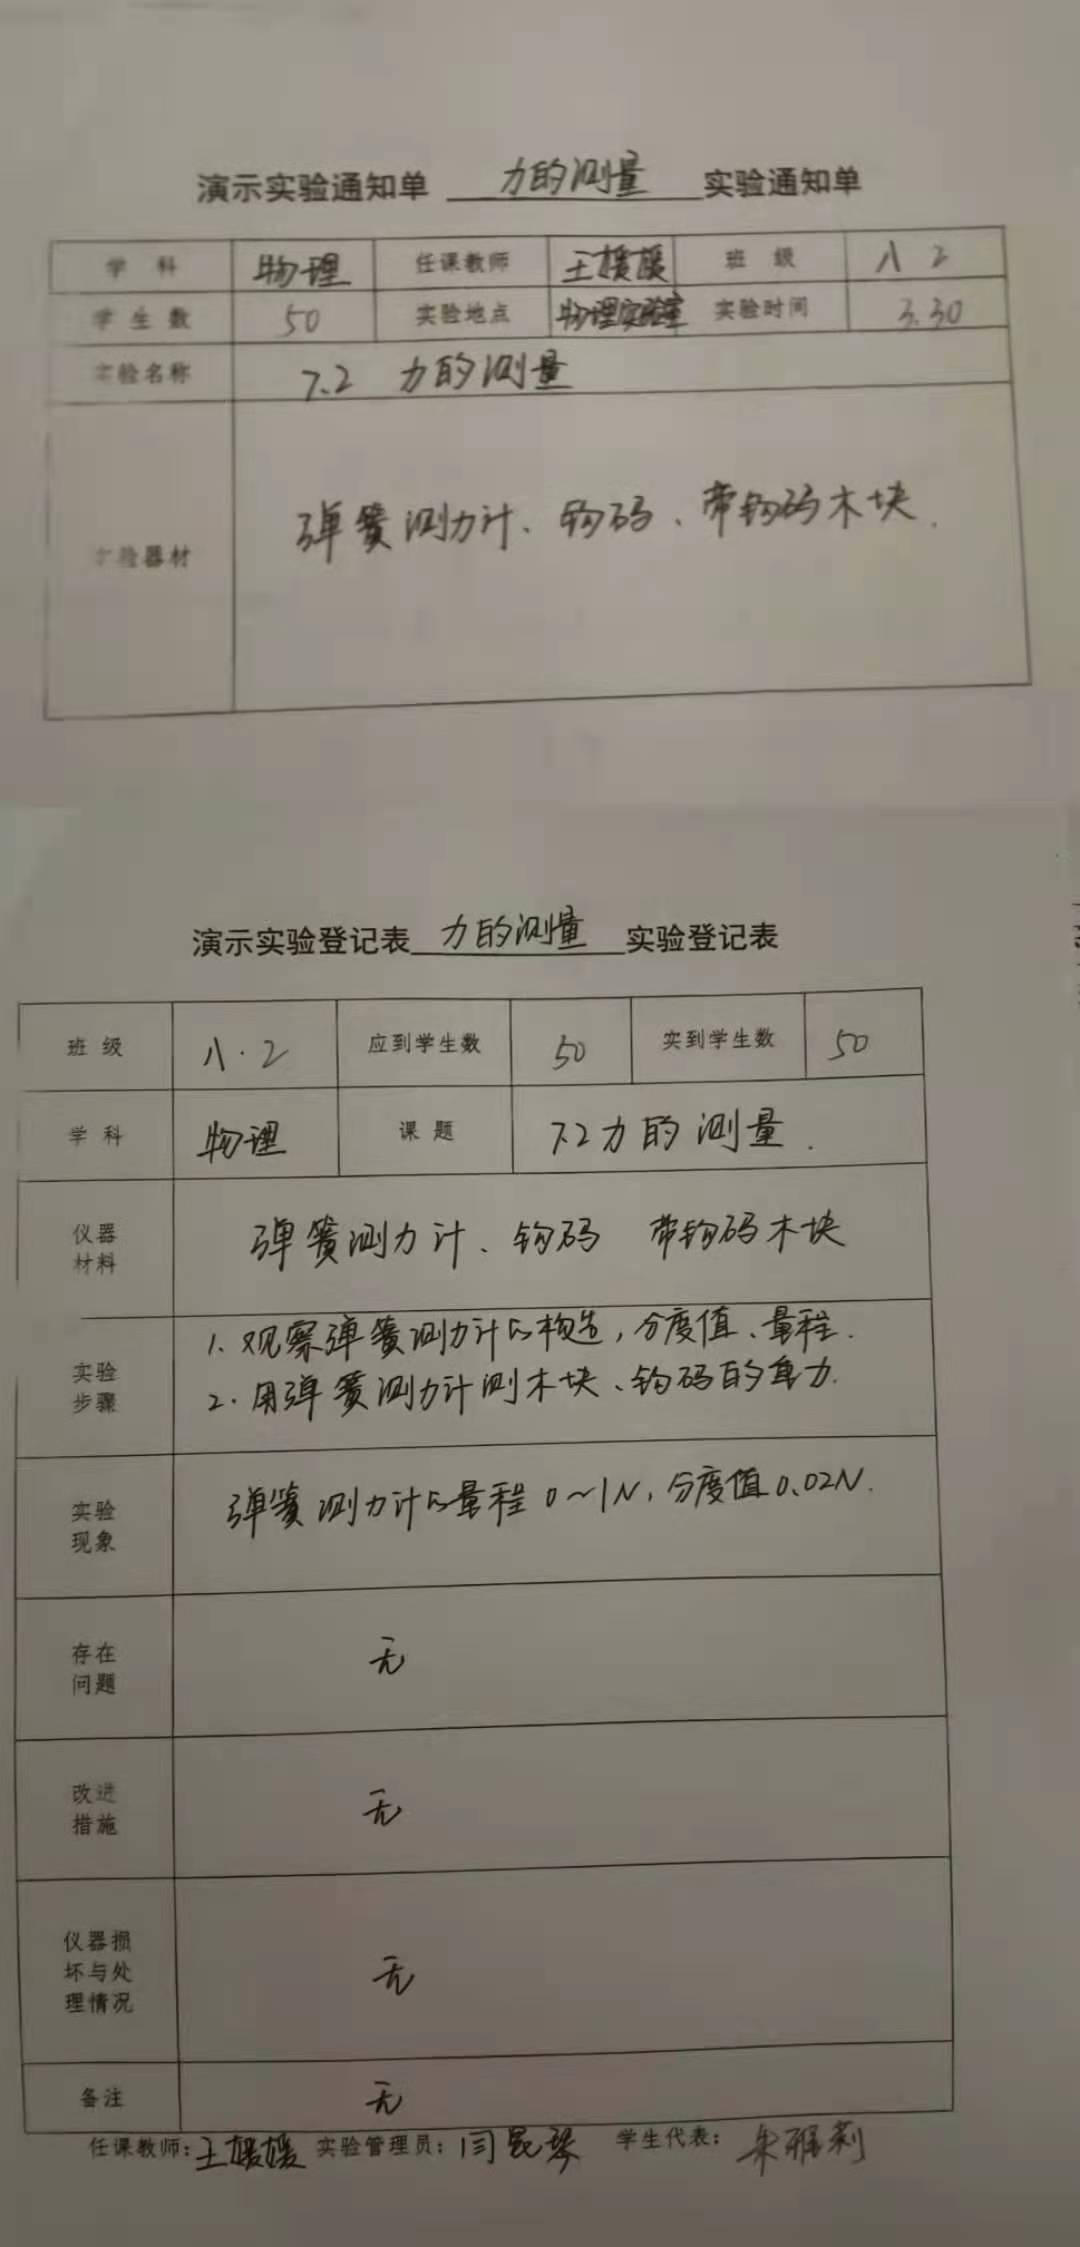 演示实验通知单 力的测量 实验通知单
学科 物理 任课教师 王媛媛 班级 八 2
学生数 50 实验地点 物理实验室 实验时间 3.30
实验名称 7.2 力的测量
实验器材 弹簧测力计、钩码、带钩码木块.
演示实验登记表 力的测量 实验登记表
班级 八·2 应到学生数 50 实到学生数 50
学科 物理 课题 7.2力的测量.
仪器
材料
弹簧测力计、钩码 带钩码木块
实验
步骤
1.观察弹簧测力计的构造,分度值、量程.
2.用弹簧测力计测木块、钩码的重力.
实验
现象
弹簧测力计的量程0~1N,分度值0.02N.
存在
问题
无
改进
措施
无
仪器损
坏与处
理情况
无
备注 无
任课教师:王媛媛 实验管理员:闫昆琴 学生代表: